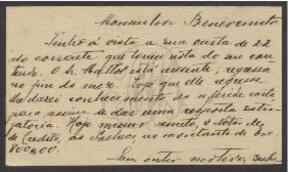 Monsenhor Benevenuto
Tenho á vista a sua carta de 22
do corrente que tomei nota do seu con
teudo. O Sr. Mattos está ausente; regressa
no fim do mez. Logo que elle regresse
lhe darei conhecimento da referida carta
para assim lhe dar uma resposta satis
fatoria. Hoje mesmo remeto a Nota de
de Credito, os Sellos no montante de
800$00.
Sem outro motivo